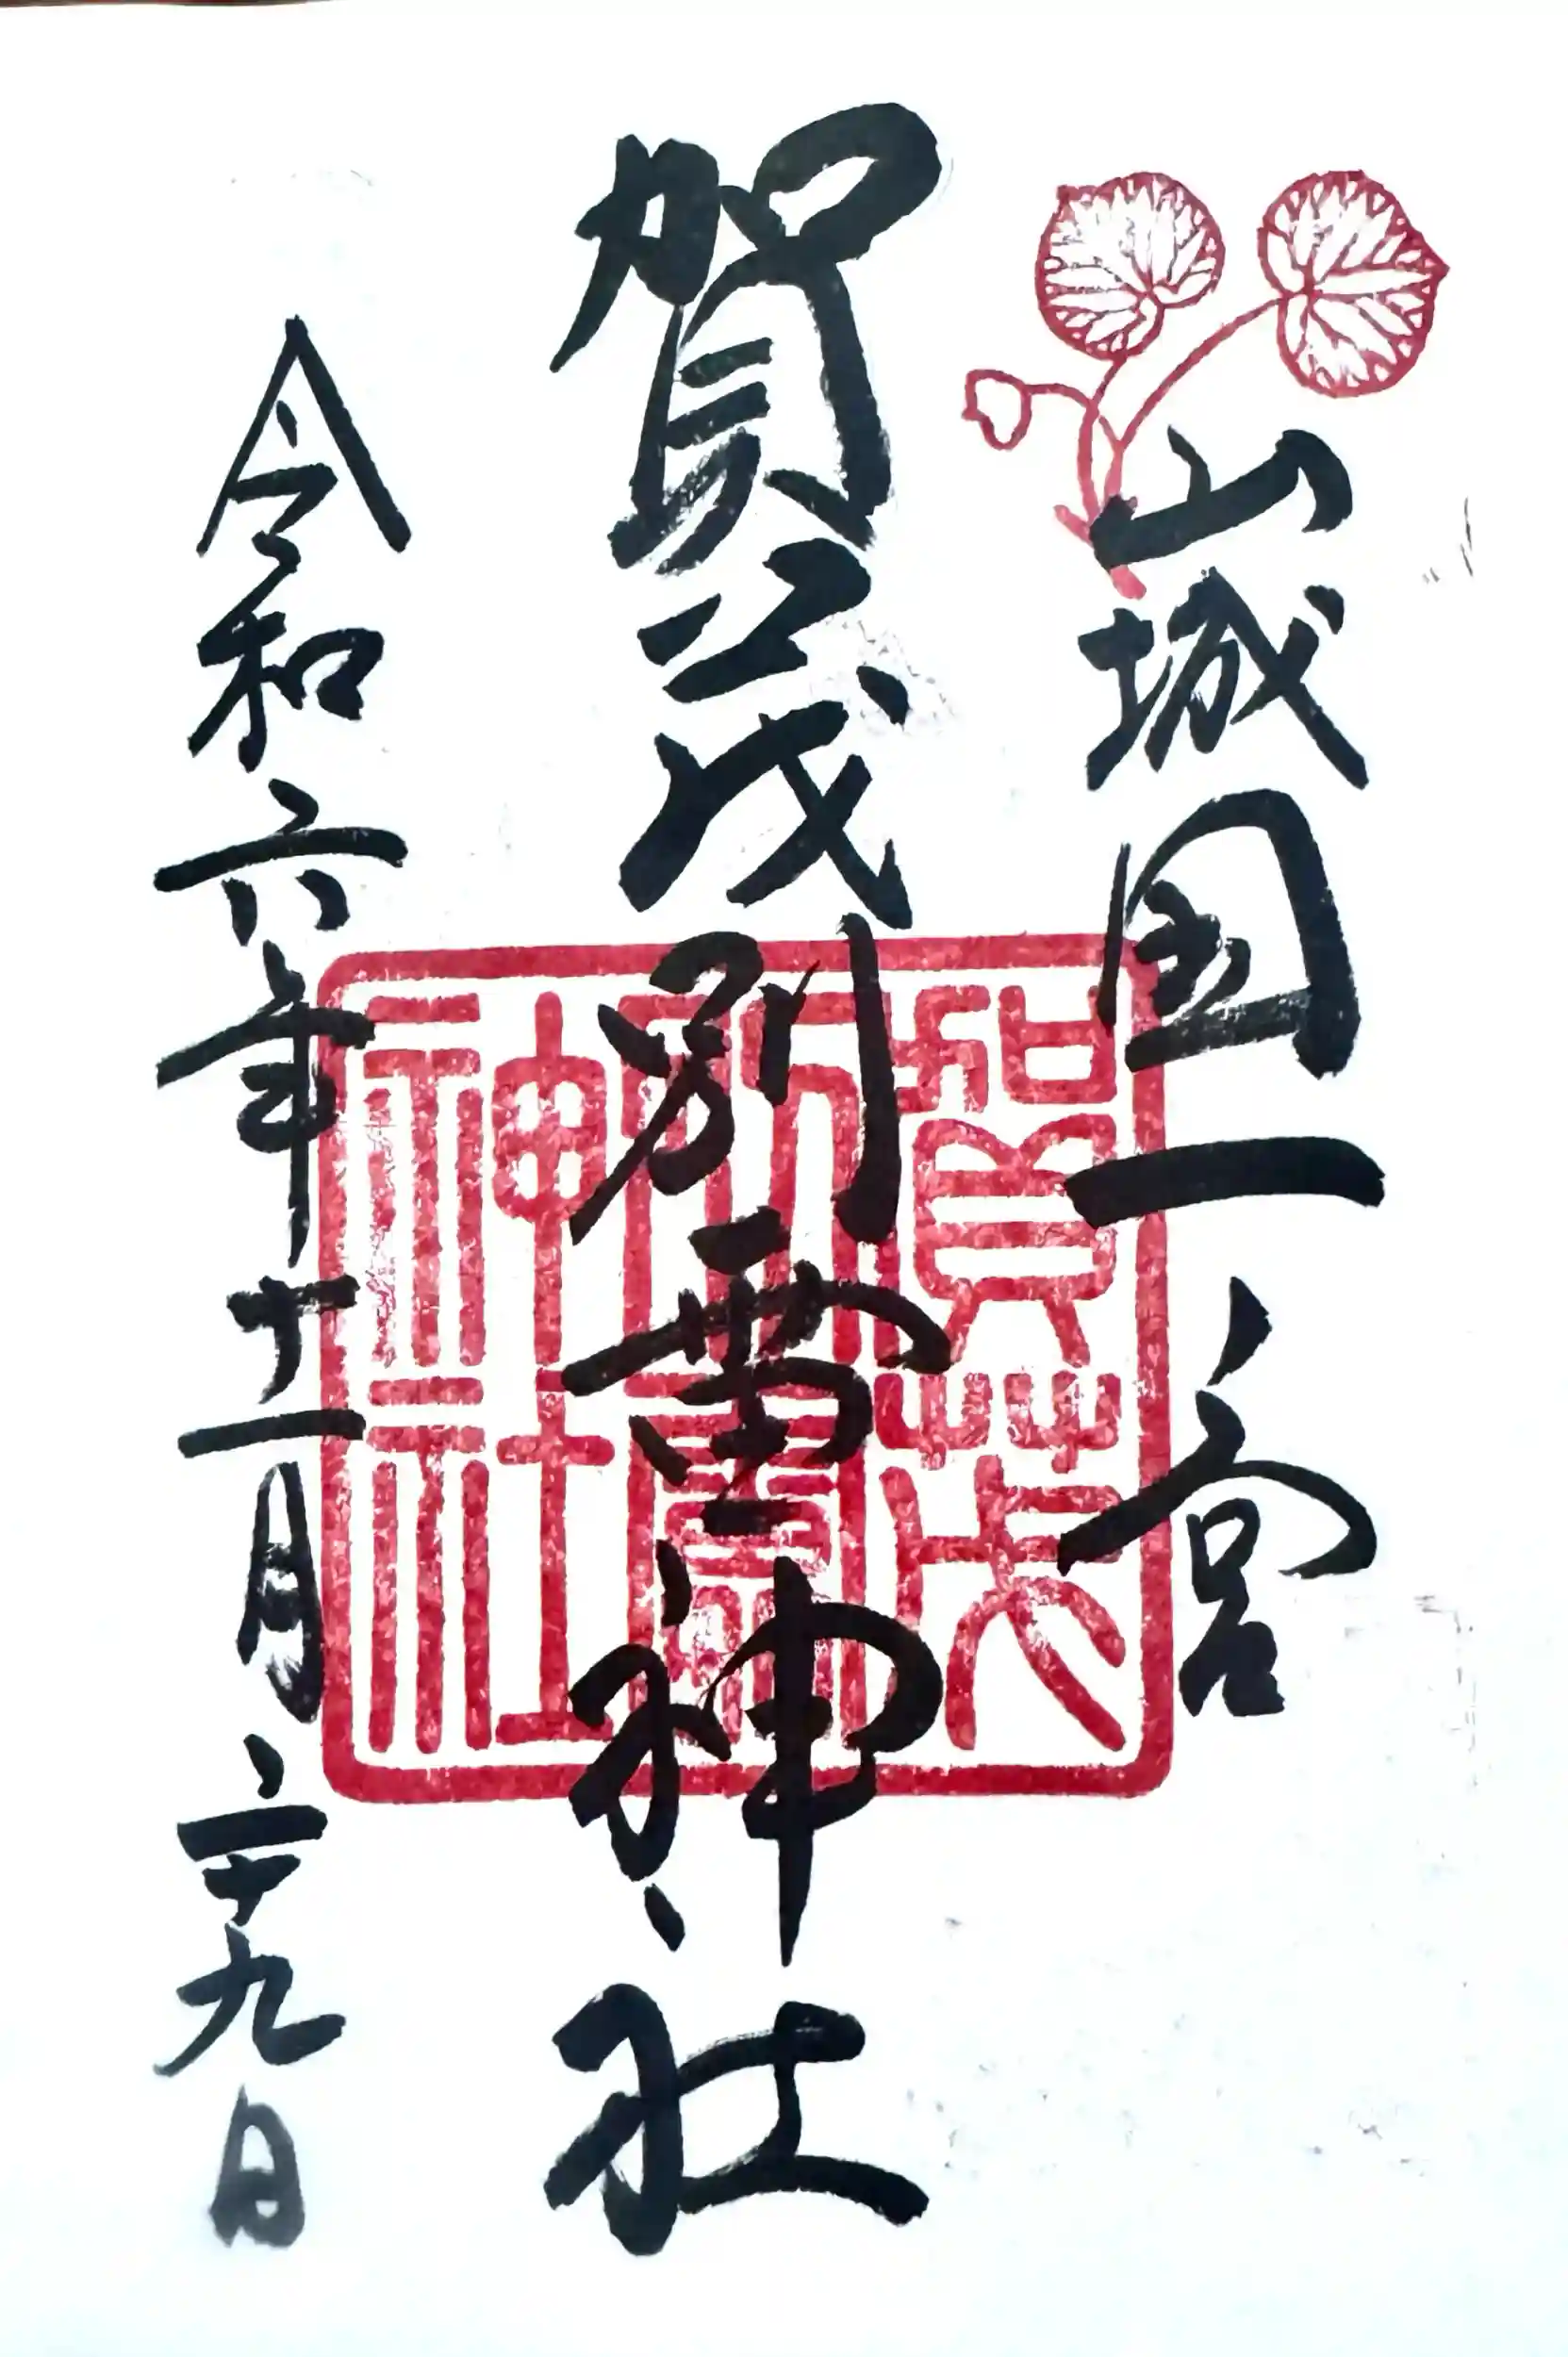 山城国一宮
賀茂別雷神社
賀茂別雷神社
令和六年十一月二十九日